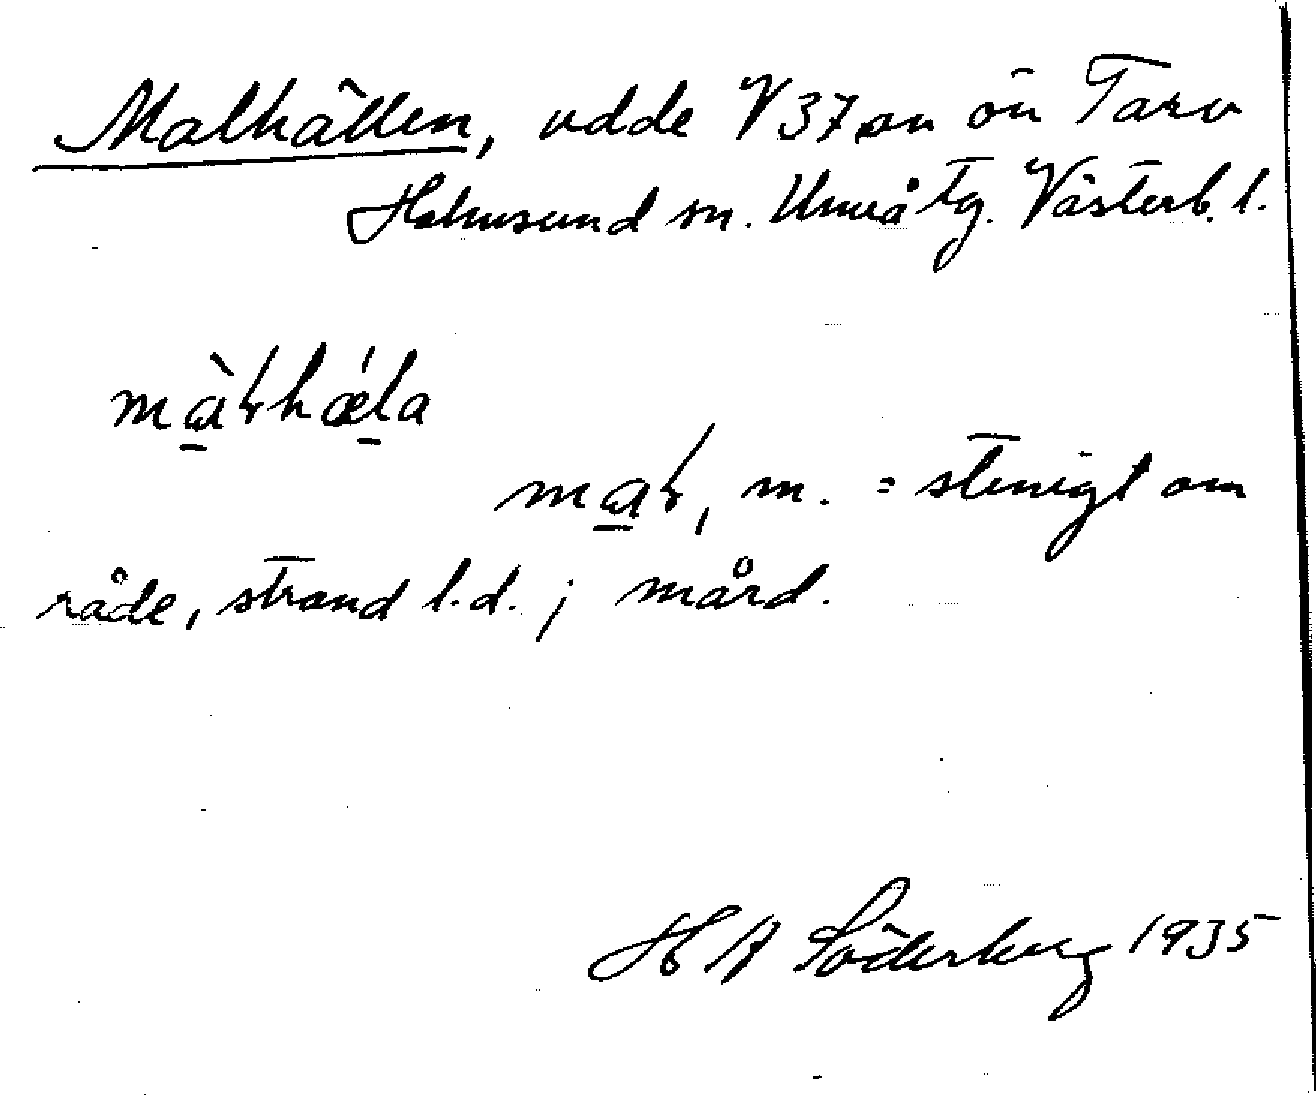 Malhällen, udde V 37 on ön Tarv
Holmsund sn. Umeå tg. Västerb. l.
màɽhǽla
maɽ, m. = stenigt om
råde, strand l.d. ; mård.
H A Söderberg 1935